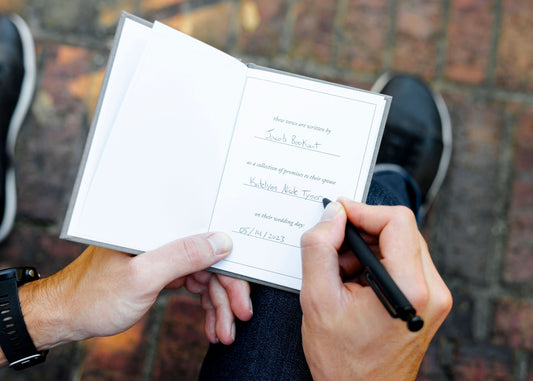 these vows are written by
Jacob Bookart
as a collection of promises to their spouse
on their wedding day:
05/14/2023